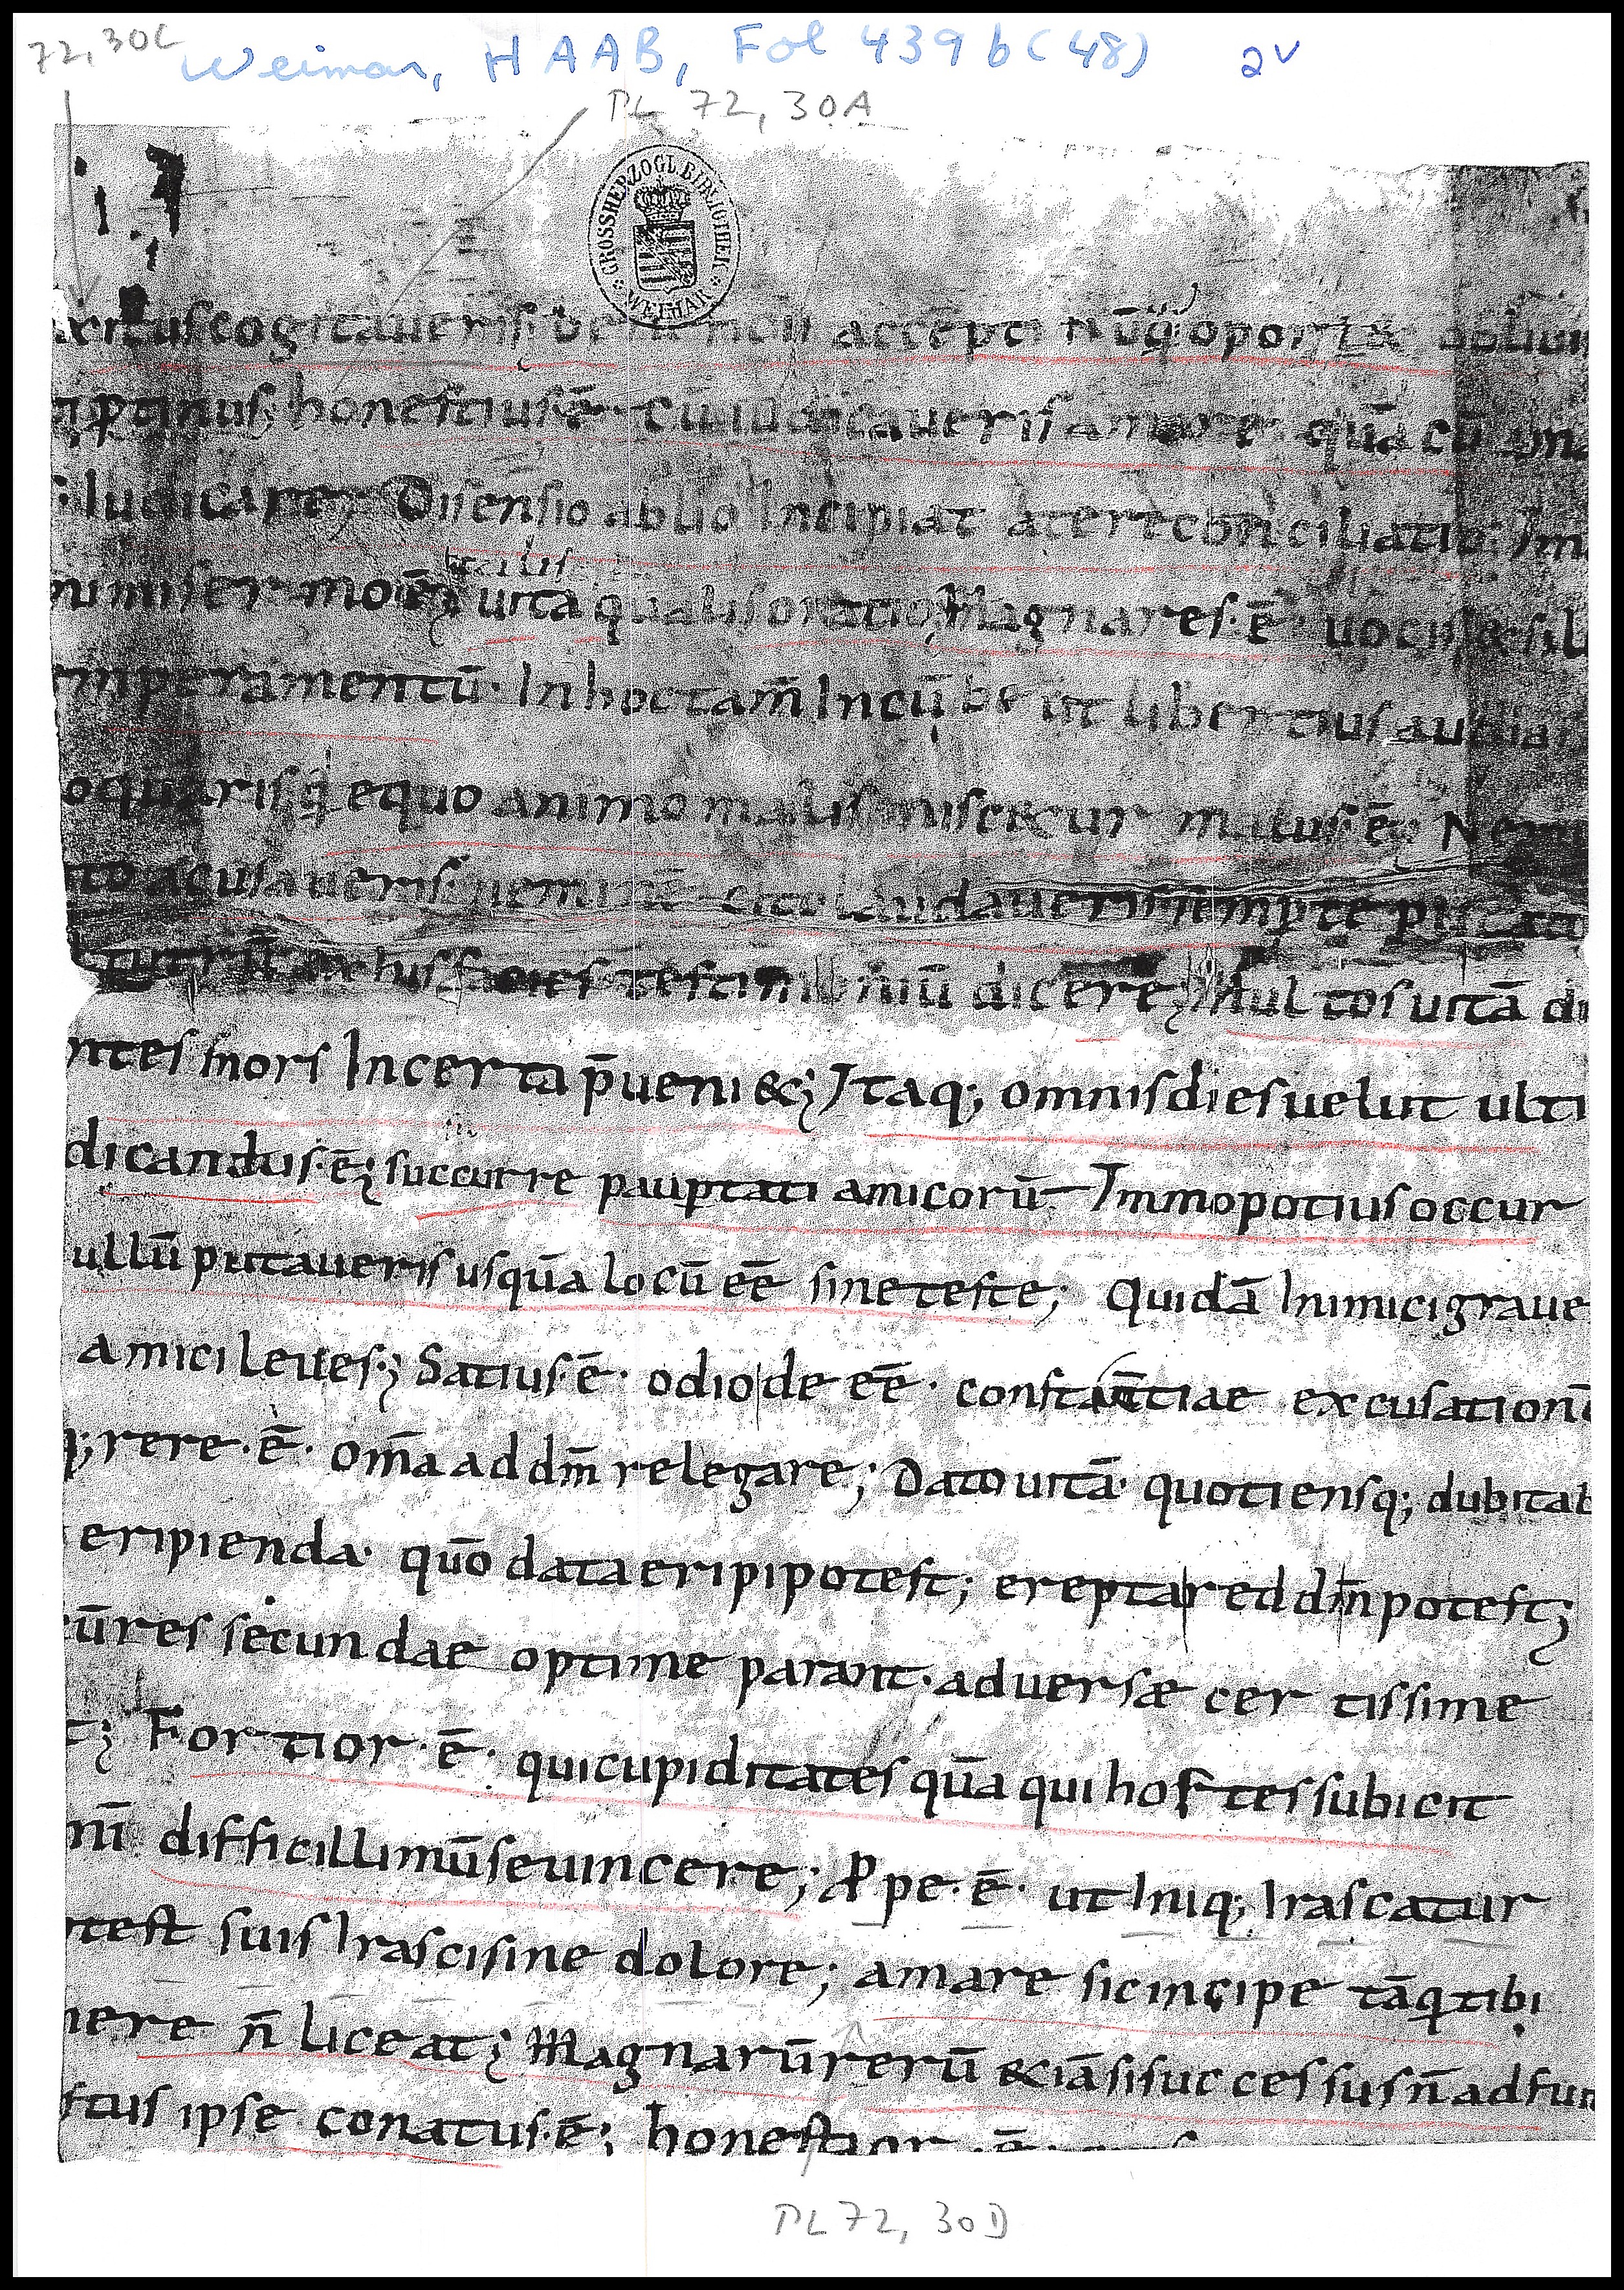 72,30C
Weimar, HAAB, Fol 439b (48) 2v
PL 72, 30A
GROSSHERZOGL BIBLIOTHEK WEIMAR
xitus cogitaueris; accepti nūq̄ oportæ obliui
ptinus; honestius ē· cū iudicaueris amare quā cū
iudicare; Disensio ab lio Incipiat at erte conciliatio·
talis
miser mo uita qualis oratio; Magna res·ē· uocis & sil
mperamentū· In hoc tam̄ Incūbe ut libentius audia
oquaris; q̄ equo animo malis miscetur malus·ē· Nem
to acusaueris· nemin̄ cito laudaueris semp te puta
testimoniū dicere; Multos uitā di
ntes mors Incerta p̄ueni&; Itaq; omnis dies uelut ulti
dicandus·ē; succurre pauptati amicorū· Immo potius occur
ullū putaueris usquā locū eē sine teste; Quidā Inimici graue
amici leues; Satius·ē· odio de eē· constantiae excusationē
q;rere·ē· om̄a ad dm̄ relegare; Dato uitā· quotiensq; dubitab
eripienda· quō data eripi potest; erepta reddi n̄ potest;
cū res secundae optime parant· aduersæ certissime
t; Fortior·ē· qui cupiditates quā qui hostes subicit
nī difficillimū se uincere; Ppe·ē· ut Iniq; Irascatur
test suis Irasci sine dolore; amare sic incipe tāq tibi
nere n̄ liceat; Magnarū rerū & iā si successus n̄ adfue
stus ipse conatus·ē; honestior·ē·
PL 72, 30D